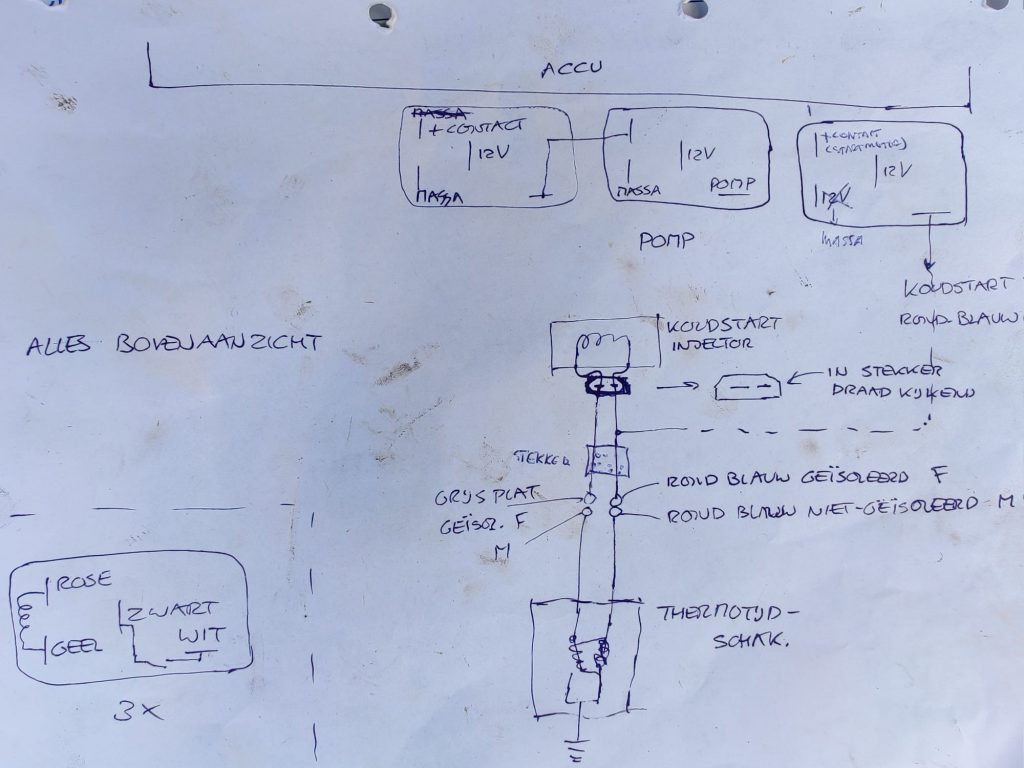 ACCU
MASSA
+ CONTACT
12V
MASSA
12V
MASSA
POMP
POMP
+ CONTACT
(STARTMOTOR)
12V
12V
MASSA
KOUDSTART
ROND-BLAUW
ALLES BOVENAANZICHT
KOUDSTART
INJECTOR
IN STEKKER
DRAAD KIJKEND
STEKKER
GRIJS PLAT
GEÏSOL. F
M
ROND BLAUW GEÏSOLEERD F
ROND BLAUW NIET-GEÏSOLEERD M
ROSE
GEEL
ZWART
WIT
3X
THERMOTIJD-
SCHAK.